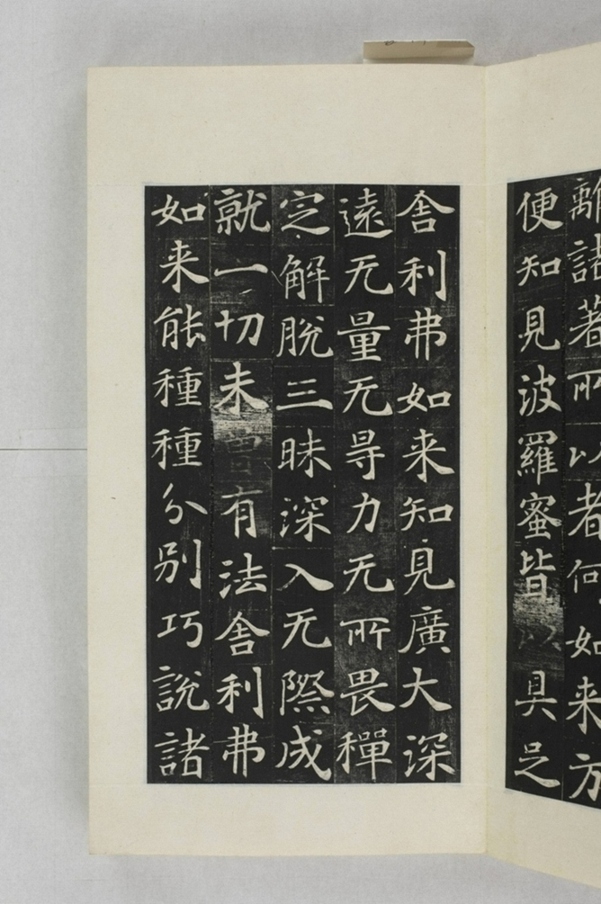 離諸著所以者何如来方
便知見波羅蜜皆以具足
舍利弗如来知見廣大深
遠无量无㝵力无所畏禪
定解脫三昧深入无際成
就一切未曾有法舍利弗
如来能種種分別巧說諸